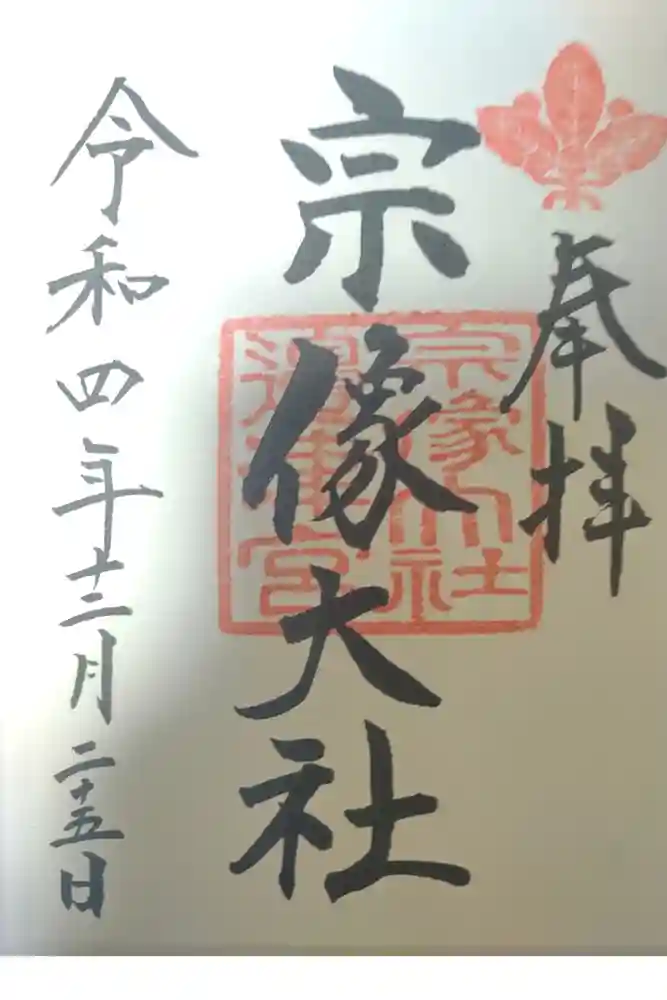 奉拝
宗像大社
宗像大社
邊津宮
令和四年十二月二十五日